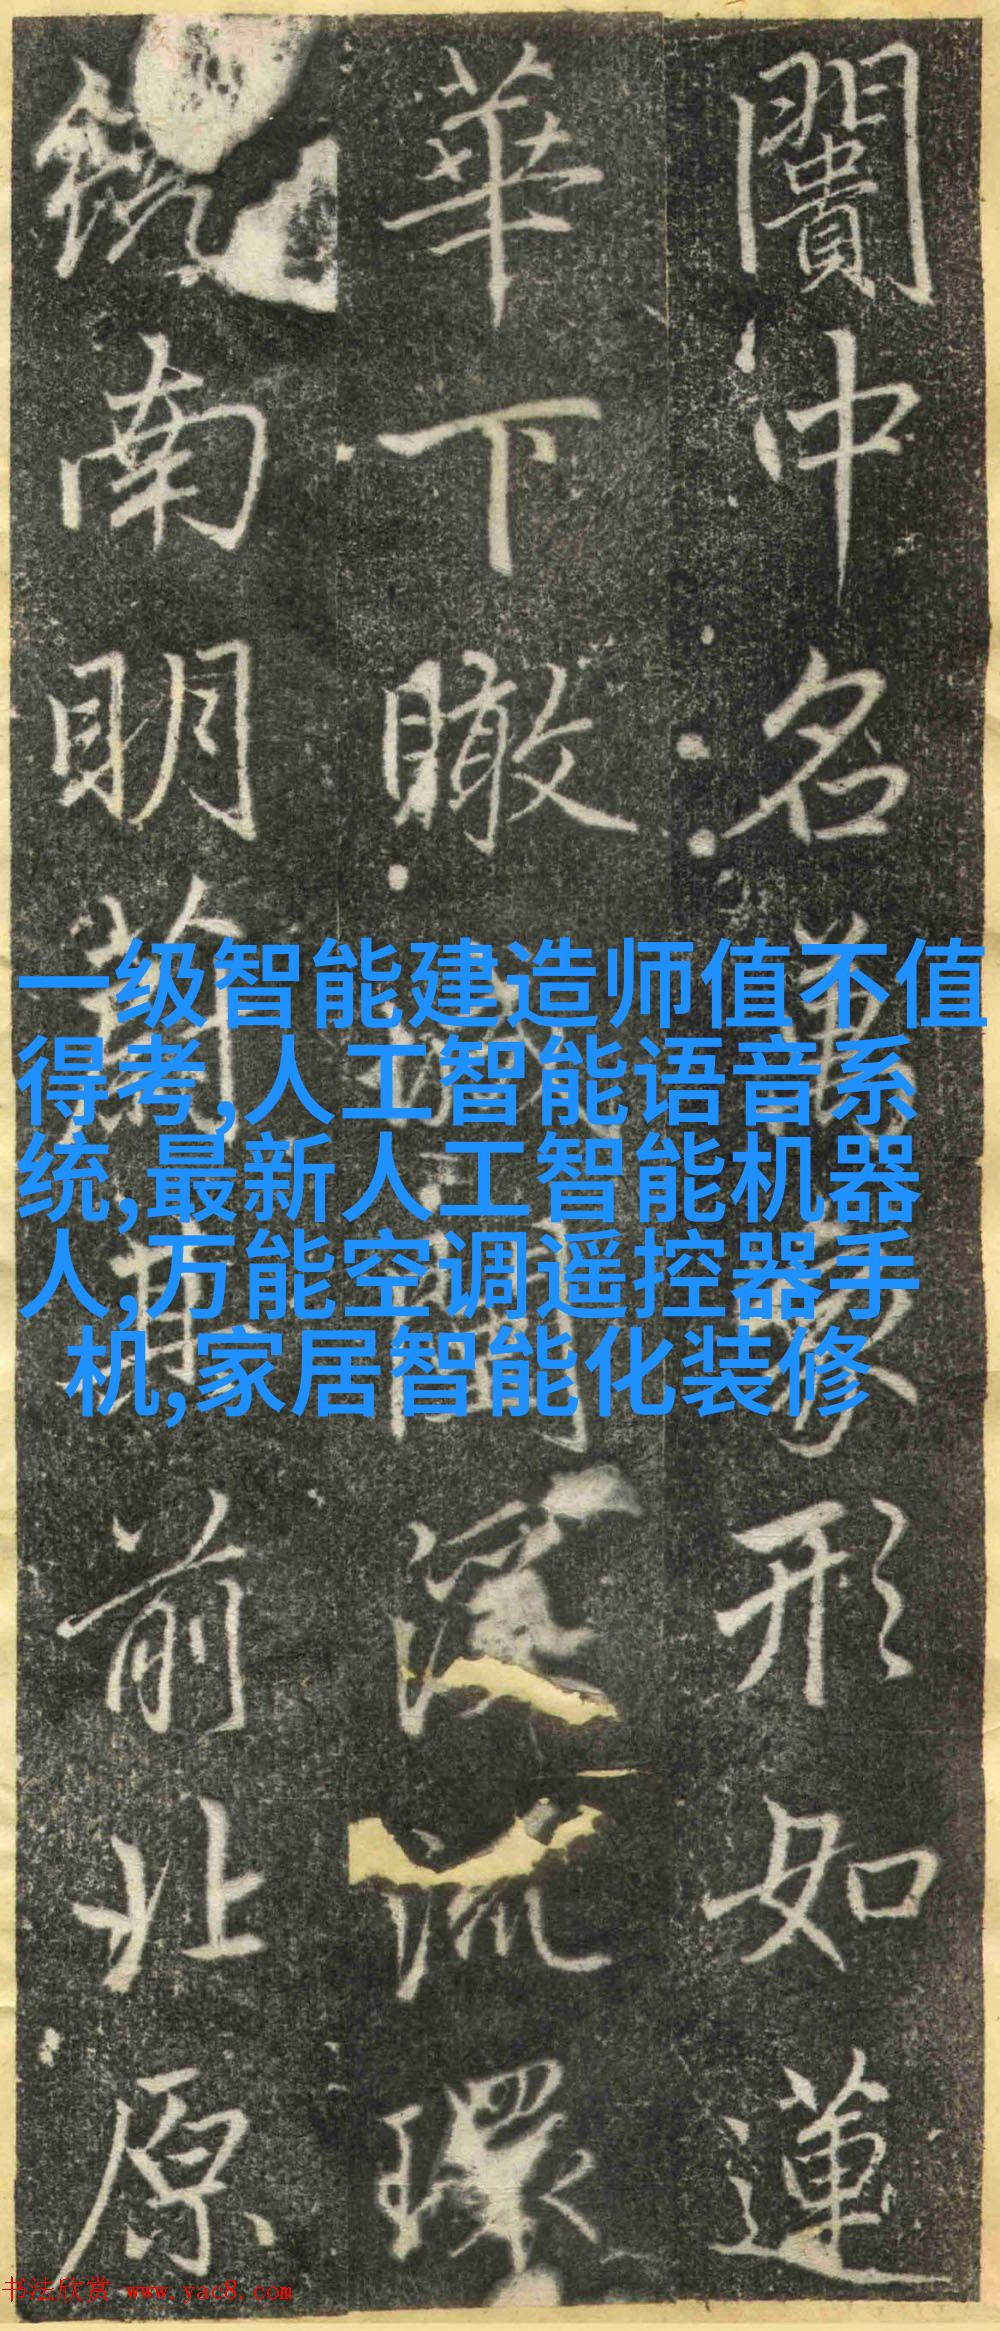 闠中名萬形如蓮
華下瞰流環
南明前北原
一级智能建造师值不值
得考,人工智能语音系
统,最新人工智能机器
人,万能空调遥控器手
机,家居智能化装修
书法欣赏 www.yac8.com